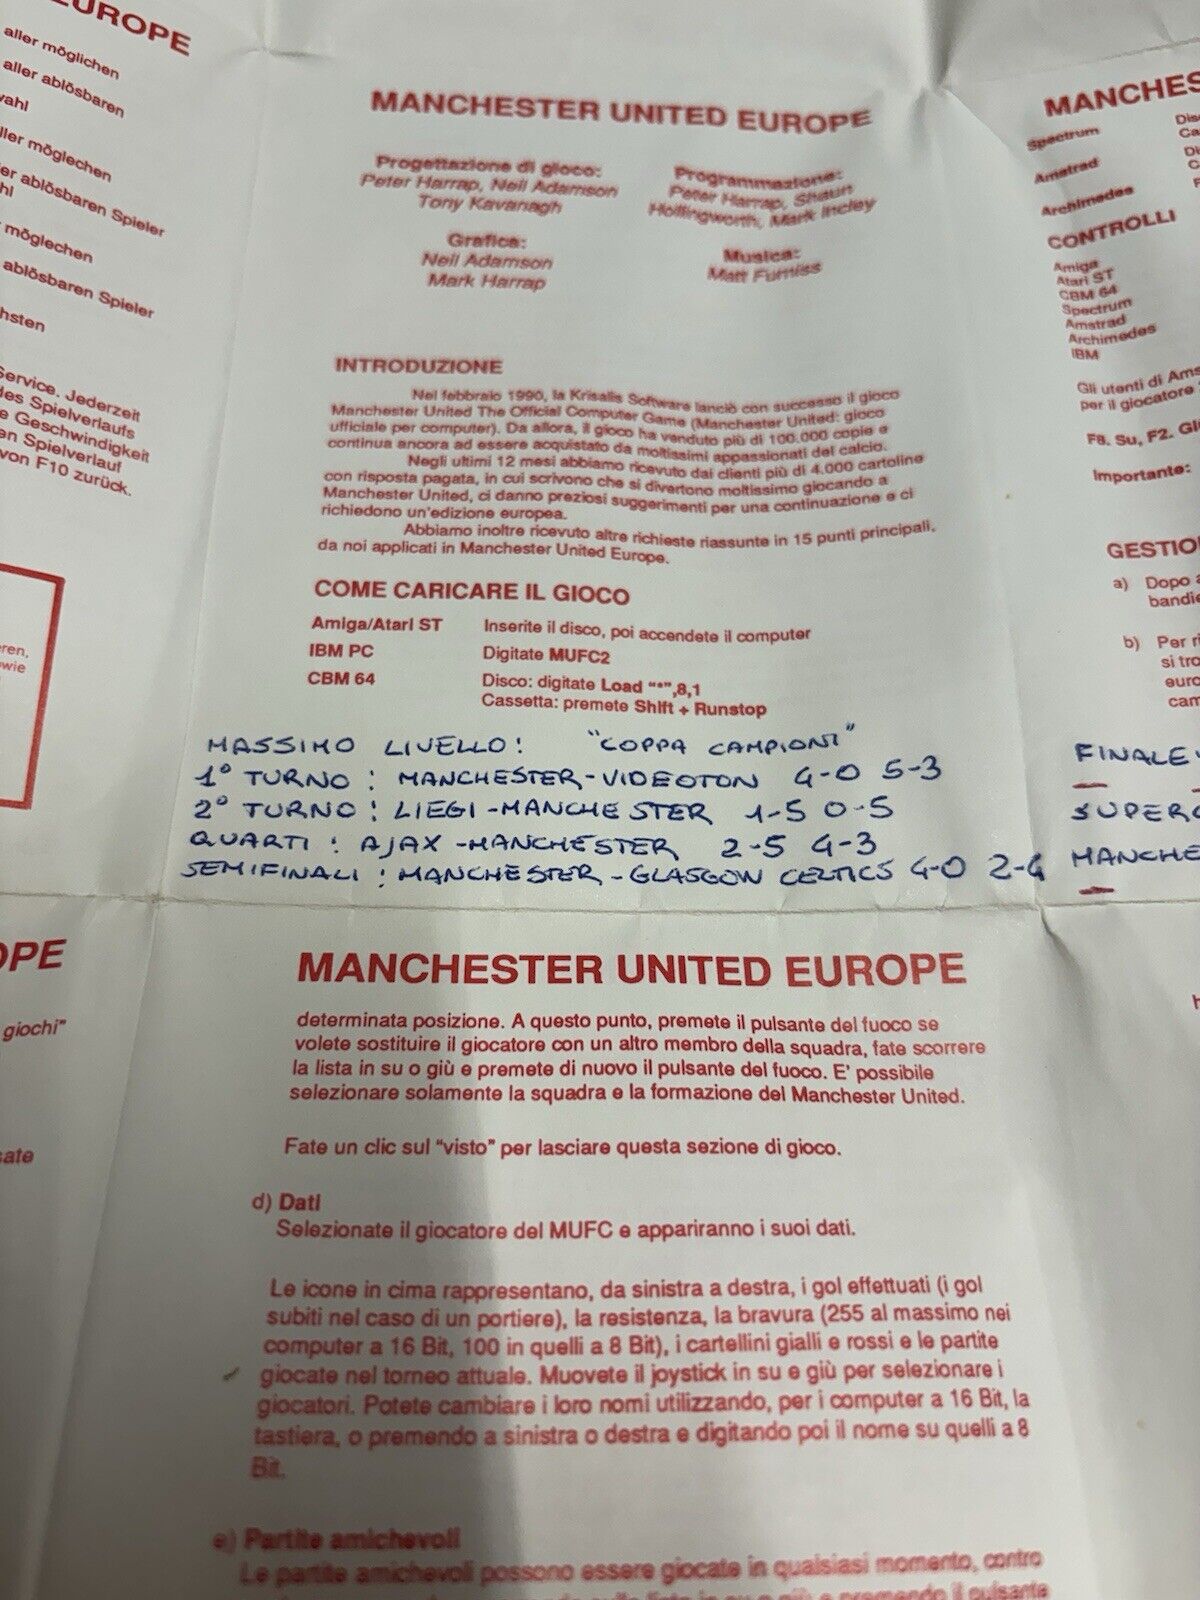 EUROPE
aller möglichen
aller ablösbaren
aller möglechen
er ablösbaren Spieler
möglechen
ablösbaren Spieler
hsten
Service. Jederzeit
des Spielverlaufs
e Geschwindigkeit
en Spielverlauf
von F10 zurück.
eren,
owie
MANCHESTER UNITED EUROPE
Progettazione di gioco:
Peter Harrap, Neil Adamson
Tony Kavanagh
Programmazione:
Peter Harrap, Shaun
Hollingworth, Mark Incley
Grafica:
Neil Adamson
Mark Harrap
Musica:
Matt Furniss
INTRODUZIONE
Nel febbraio 1990, la Krisalis Software lanciò con successo il gioco
Manchester United The Official Computer Game (Manchester United: gioco
ufficiale per computer). Da allora, il gioco ha venduto più di 100.000 copie e
continua ancora ad essere acquistato da moltissimi appassionati del calcio.
Negli ultimi 12 mesi abbiamo ricevuto dai clienti più di 4.000 cartoline
con risposta pagata, in cui scrivono che si divertono moltissimo giocando a
Manchester United, ci danno preziosi suggerimenti per una continuazione e ci
richiedono un'edizione europea.
Abbiamo inoltre ricevuto altre richieste riassunte in 15 punti principali,
da noi applicati in Manchester United Europe.
COME CARICARE IL GIOCO
Amiga/Atari ST Inserite il disco, poi accendete il computer
IBM PC Digitate MUFC2
CBM 64 Disco: digitate Load "*",8,1
Cassetta: premete Shift + Runstop
MASSIMO LIVELLO: "COPPA CAMPIONI"
1° TURNO: MANCHESTER-VIDEOTON 4-0 5-3
2° TURNO: LIEGI-MANCHESTER 1-5 0-5
QUARTI: AJAX-MANCHESTER 2-5 4-3
SEMIFINALI: MANCHESTER-GLASGOW CELTICS 4-0 2-4
MANCHES
Spectrum
Amstrad
Archimedes
CONTROLLI
Amiga
Atari ST
CBM 64
Spectrum
Amstrad
Archimedes
IBM
Gli utenti di Ams
per il giocatore
F8. Su, F2. Gi
Importante:
GESTIO
a) Dopo a
bandie
b) Per ri
si tro
euro
cam
FINALE
SUPERC
MANCHE
OPE
giochi"
sate
MANCHESTER UNITED EUROPE
determinata posizione. A questo punto, premete il pulsante del fuoco se
volete sostituire il giocatore con un altro membro della squadra, fate scorrere
la lista in su o giù e premete di nuovo il pulsante del fuoco. E' possibile
selezionare solamente la squadra e la formazione del Manchester United.
Fate un clic sul "visto" per lasciare questa sezione di gioco.
d) Dati
Selezionate il giocatore del MUFC e appariranno i suoi dati.
Le icone in cima rappresentano, da sinistra a destra, i gol effettuati (i gol
subiti nel caso di un portiere), la resistenza, la bravura (255 al massimo nei
computer a 16 Bit, 100 in quelli a 8 Bit), i cartellini gialli e rossi e le partite
giocate nel torneo attuale. Muovete il joystick in su e giù per selezionare i
giocatori. Potete cambiare i loro nomi utilizzando, per i computer a 16 Bit, la
tastiera, o premendo a sinistra o destra e digitando poi il nome su quelli a 8
Bit.
e) Partite amichevoli
Le partite amichevoli possono essere giocate in qualsiasi momento, contro